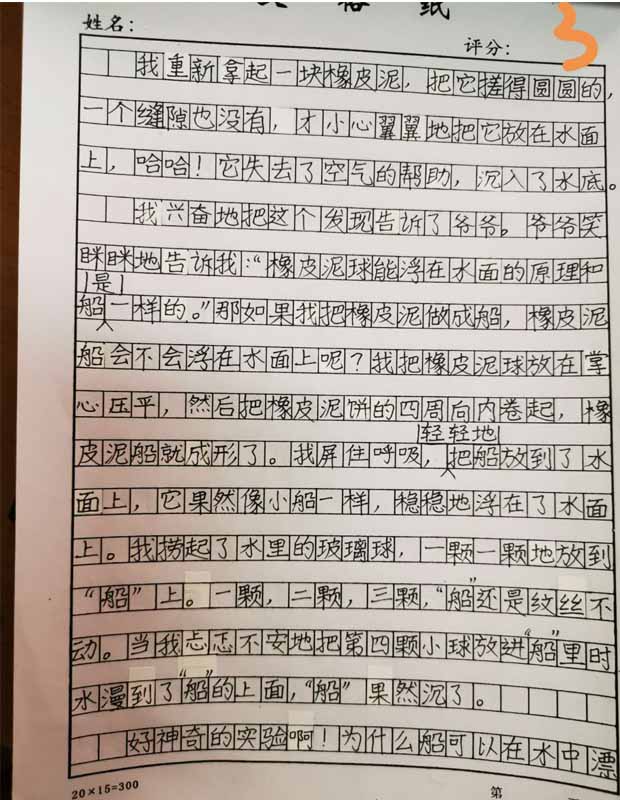 姓名：
评分：
3
我重新拿起一块橡皮泥，把它搓得圆圆的，
一个缝隙也没有，才小心翼翼地把它放在水面
上，哈哈！它失去了空气的帮助，沉入了水底。
我兴奋地把这个发现告诉了爷爷。爷爷笑
眯眯地告诉我：“橡皮泥球能浮在水面的原理和
是
船一样的。”那如果我把橡皮泥做成船，橡皮泥
船会不会浮在水面上呢？我把橡皮泥球放在掌
心压平，然后把橡皮泥饼的四周向内卷起，橡
轻轻地
皮泥船就成形了。我屏住呼吸，把船放到了水
面上，它果然像小船一样，稳稳地浮在了水面
上。我捞起了水里的玻璃球，一颗一颗地放到
“船”上。一颗，二颗，三颗，“船”还是纹丝不
动。当我忐忑不安地把第四颗小球放进“船”里时
水漫到了“船”的上面，“船”果然沉了。
好神奇的实验啊！为什么船可以在水中漂
20×15=300
第